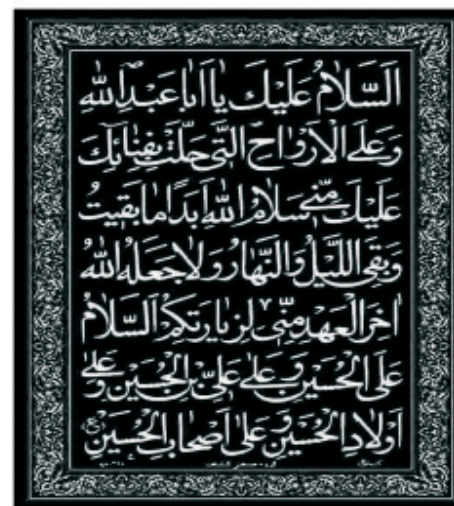 اَلسَّلامُ عَلَيْكَ يا اَبا عَبْدِاللهِ
وَعَلَى الْاَرْواحِ الَّتى حَلَّتْ بِفِنائِكَ
عَلَيْكَ مِنّى سَلامُ اللهِ اَبَدًا ما بَقيتُ
وَبَقِىَ اللَّيْلُ وَالنَّهارُ وَلا جَعَلَهُ اللهُ
اخِرَ الْعَهْدِ مِنّى لِزِيارَتِكُمْ اَلسَّلامُ
عَلَى الْحُسَيْنِ وَعَلى عَلِىِّ بْنِ الْحُسَيْنِ وَعَلى
اَوْلادِ الْحُسَيْنِ وَعَلى اَصْحابِ الْحُسَيْنِ